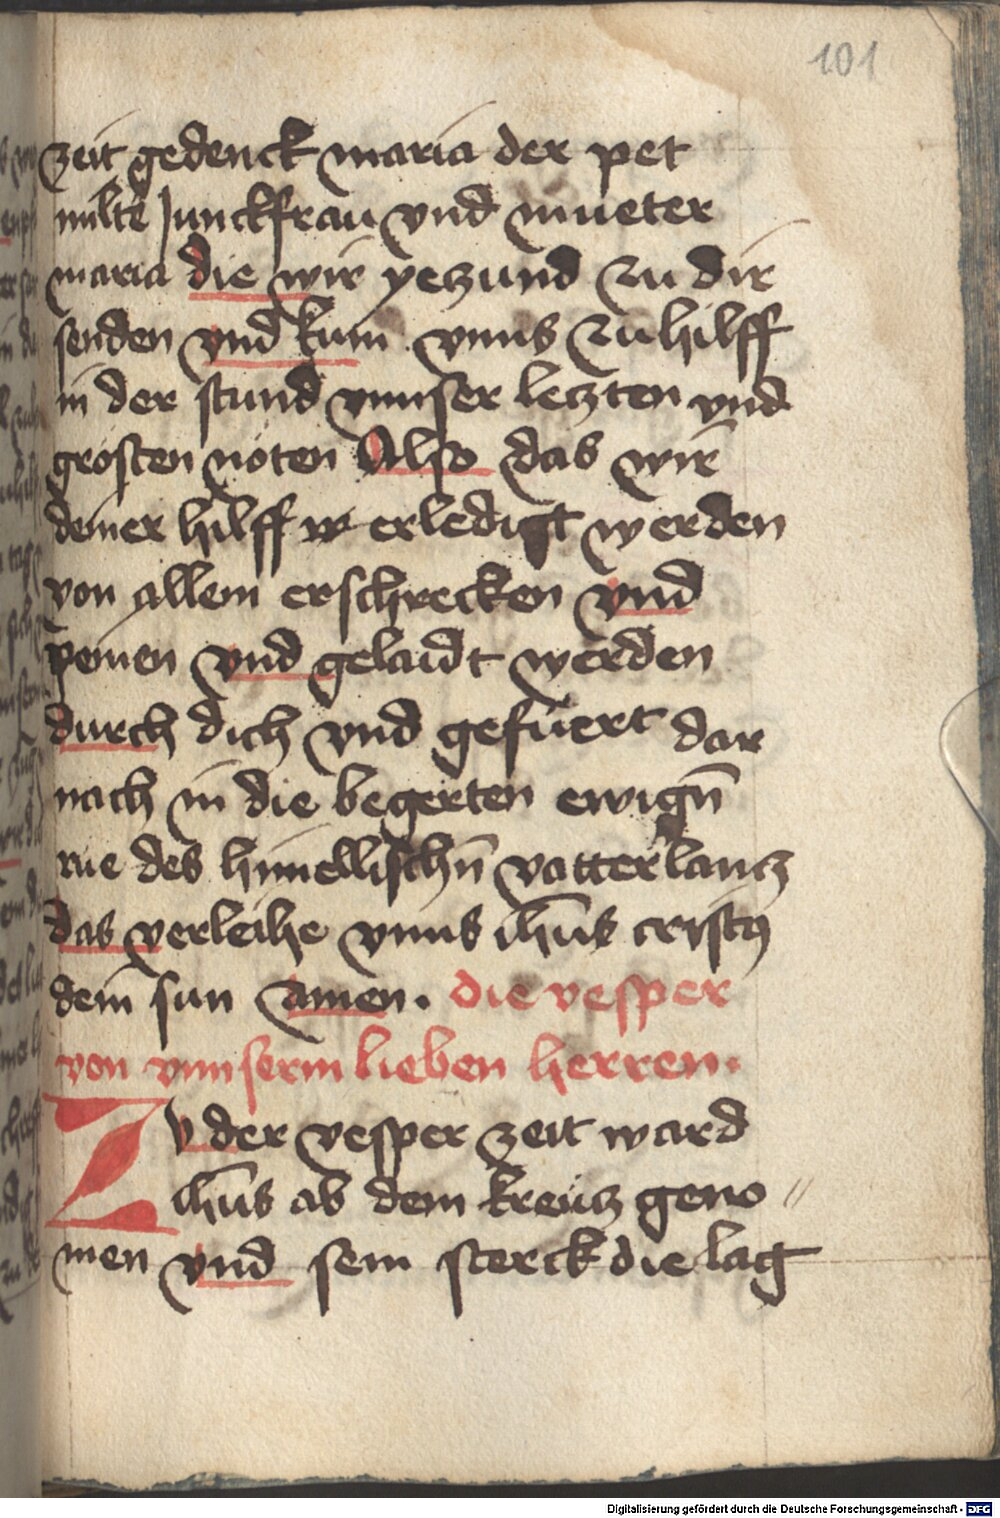 101
zeit gedenck maria der pet
milte Junckfrau vnd mueter
maria die wir yetzund zu dir
senden vnd kum vnns zu hilff
in der stund vnnser letzten vnd
grosten nöten Also das wir
deiner hilff erledigt werden
von allem erschrecken vnd
peinen vnd gelaidt werden
durch dich vnd gefüert dar
nach in die begerten ewign̄
rue des himellischn̄ vatterlantz
das verleihe vnns ihūs cristꝰ
dein sun amen. die vesper
von vnnserm lieben herren.
Zv der vesper zeit ward
ihūs ab dem kreutz geno〃
men vnd sein sterck die lag
Digitalisierung gefördert durch die Deutsche Forschungsgemeinschaft - DFG